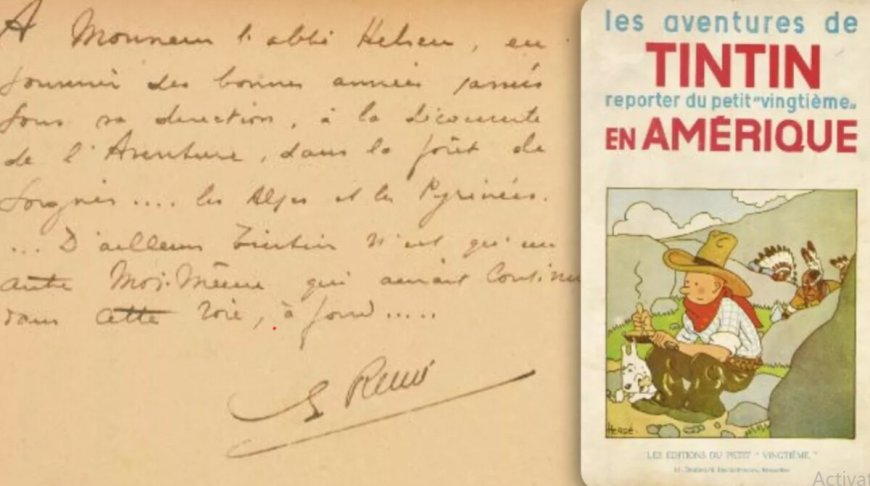 A Monsieur l'abbé Helsen, en
souvenir des bonnes années passées
sous sa direction, à la découverte
de l'Aventure, dans la forêt de
Soignes.... les Alpes et les Pyrénées.
... D'ailleurs Tintin n'est qu'un
autre Moi-Même qui aurait continué
dans cette voie, à fond.....
G Remi
les aventures de
TINTIN
reporter du petit "vingtième"
EN AMÉRIQUE
HERGÉ
LES EDITIONS DU PETIT "VINGTIÈME"
Activat